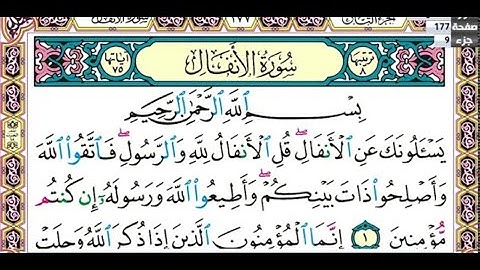 صفحة 177
جزء 9
ترتيبها ٨
سُورَةُ الأَنفَالِ
آياتها ٧٥
بِسْمِ اللَّهِ الرَّحْمَٰنِ الرَّحِيمِ
يَسْـَٔلُونَكَ عَنِ الْأَنفَالِ ۖ قُلِ الْأَنفَالُ لِلَّهِ وَالرَّسُولِ ۖ فَاتَّقُوا اللَّهَ
وَأَصْلِحُوا ذَاتَ بَيْنِكُمْ ۖ وَأَطِيعُوا اللَّهَ وَرَسُولَهُ إِن كُنتُم
مُّؤْمِنِينَ ١ إِنَّمَا الْمُؤْمِنُونَ الَّذِينَ إِذَا ذُكِرَ اللَّهُ وَجِلَتْ